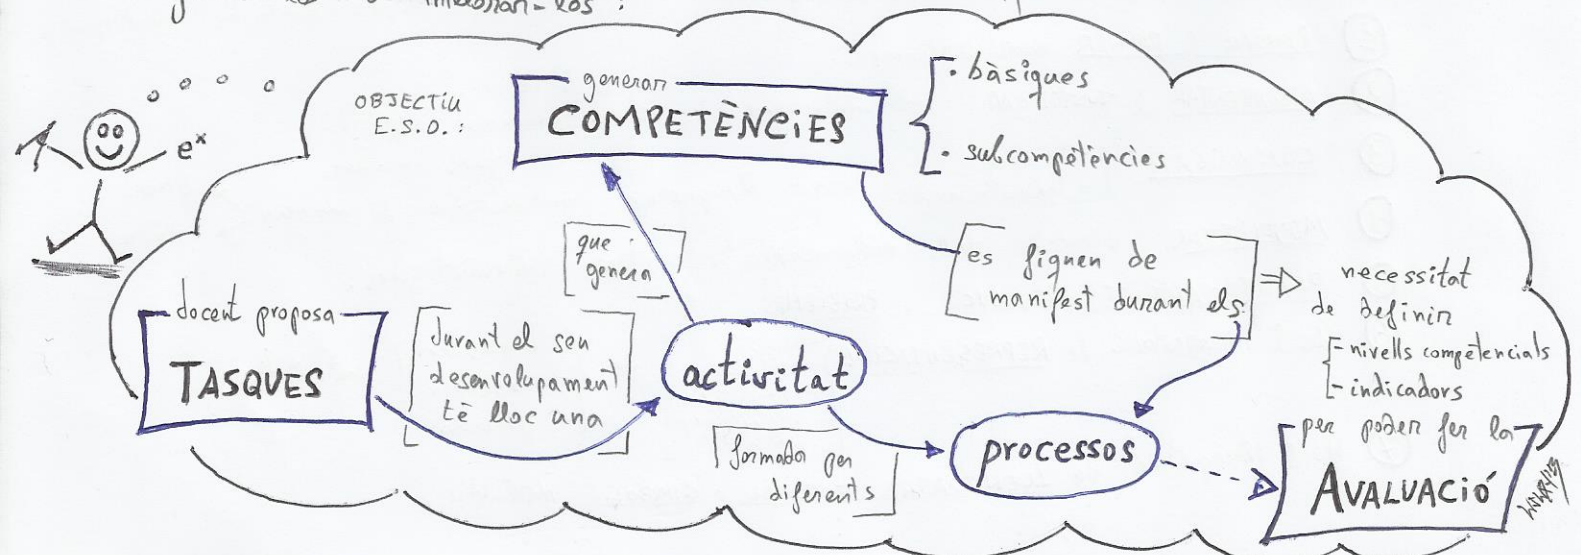 OBJECTIU
E.S.O.:
generar
COMPETÈNCIES
· bàsiques
· subcompetències
e^x
que
genera
es fiquen de
manifest durant els
necessitat
de definir
- nivells competencials
- indicadors
per poder fer la
AVALUACIÓ
docent proposa
TASQUES
durant el seu
desenvolupament
té lloc una
activitat
formada per
diferents
processos